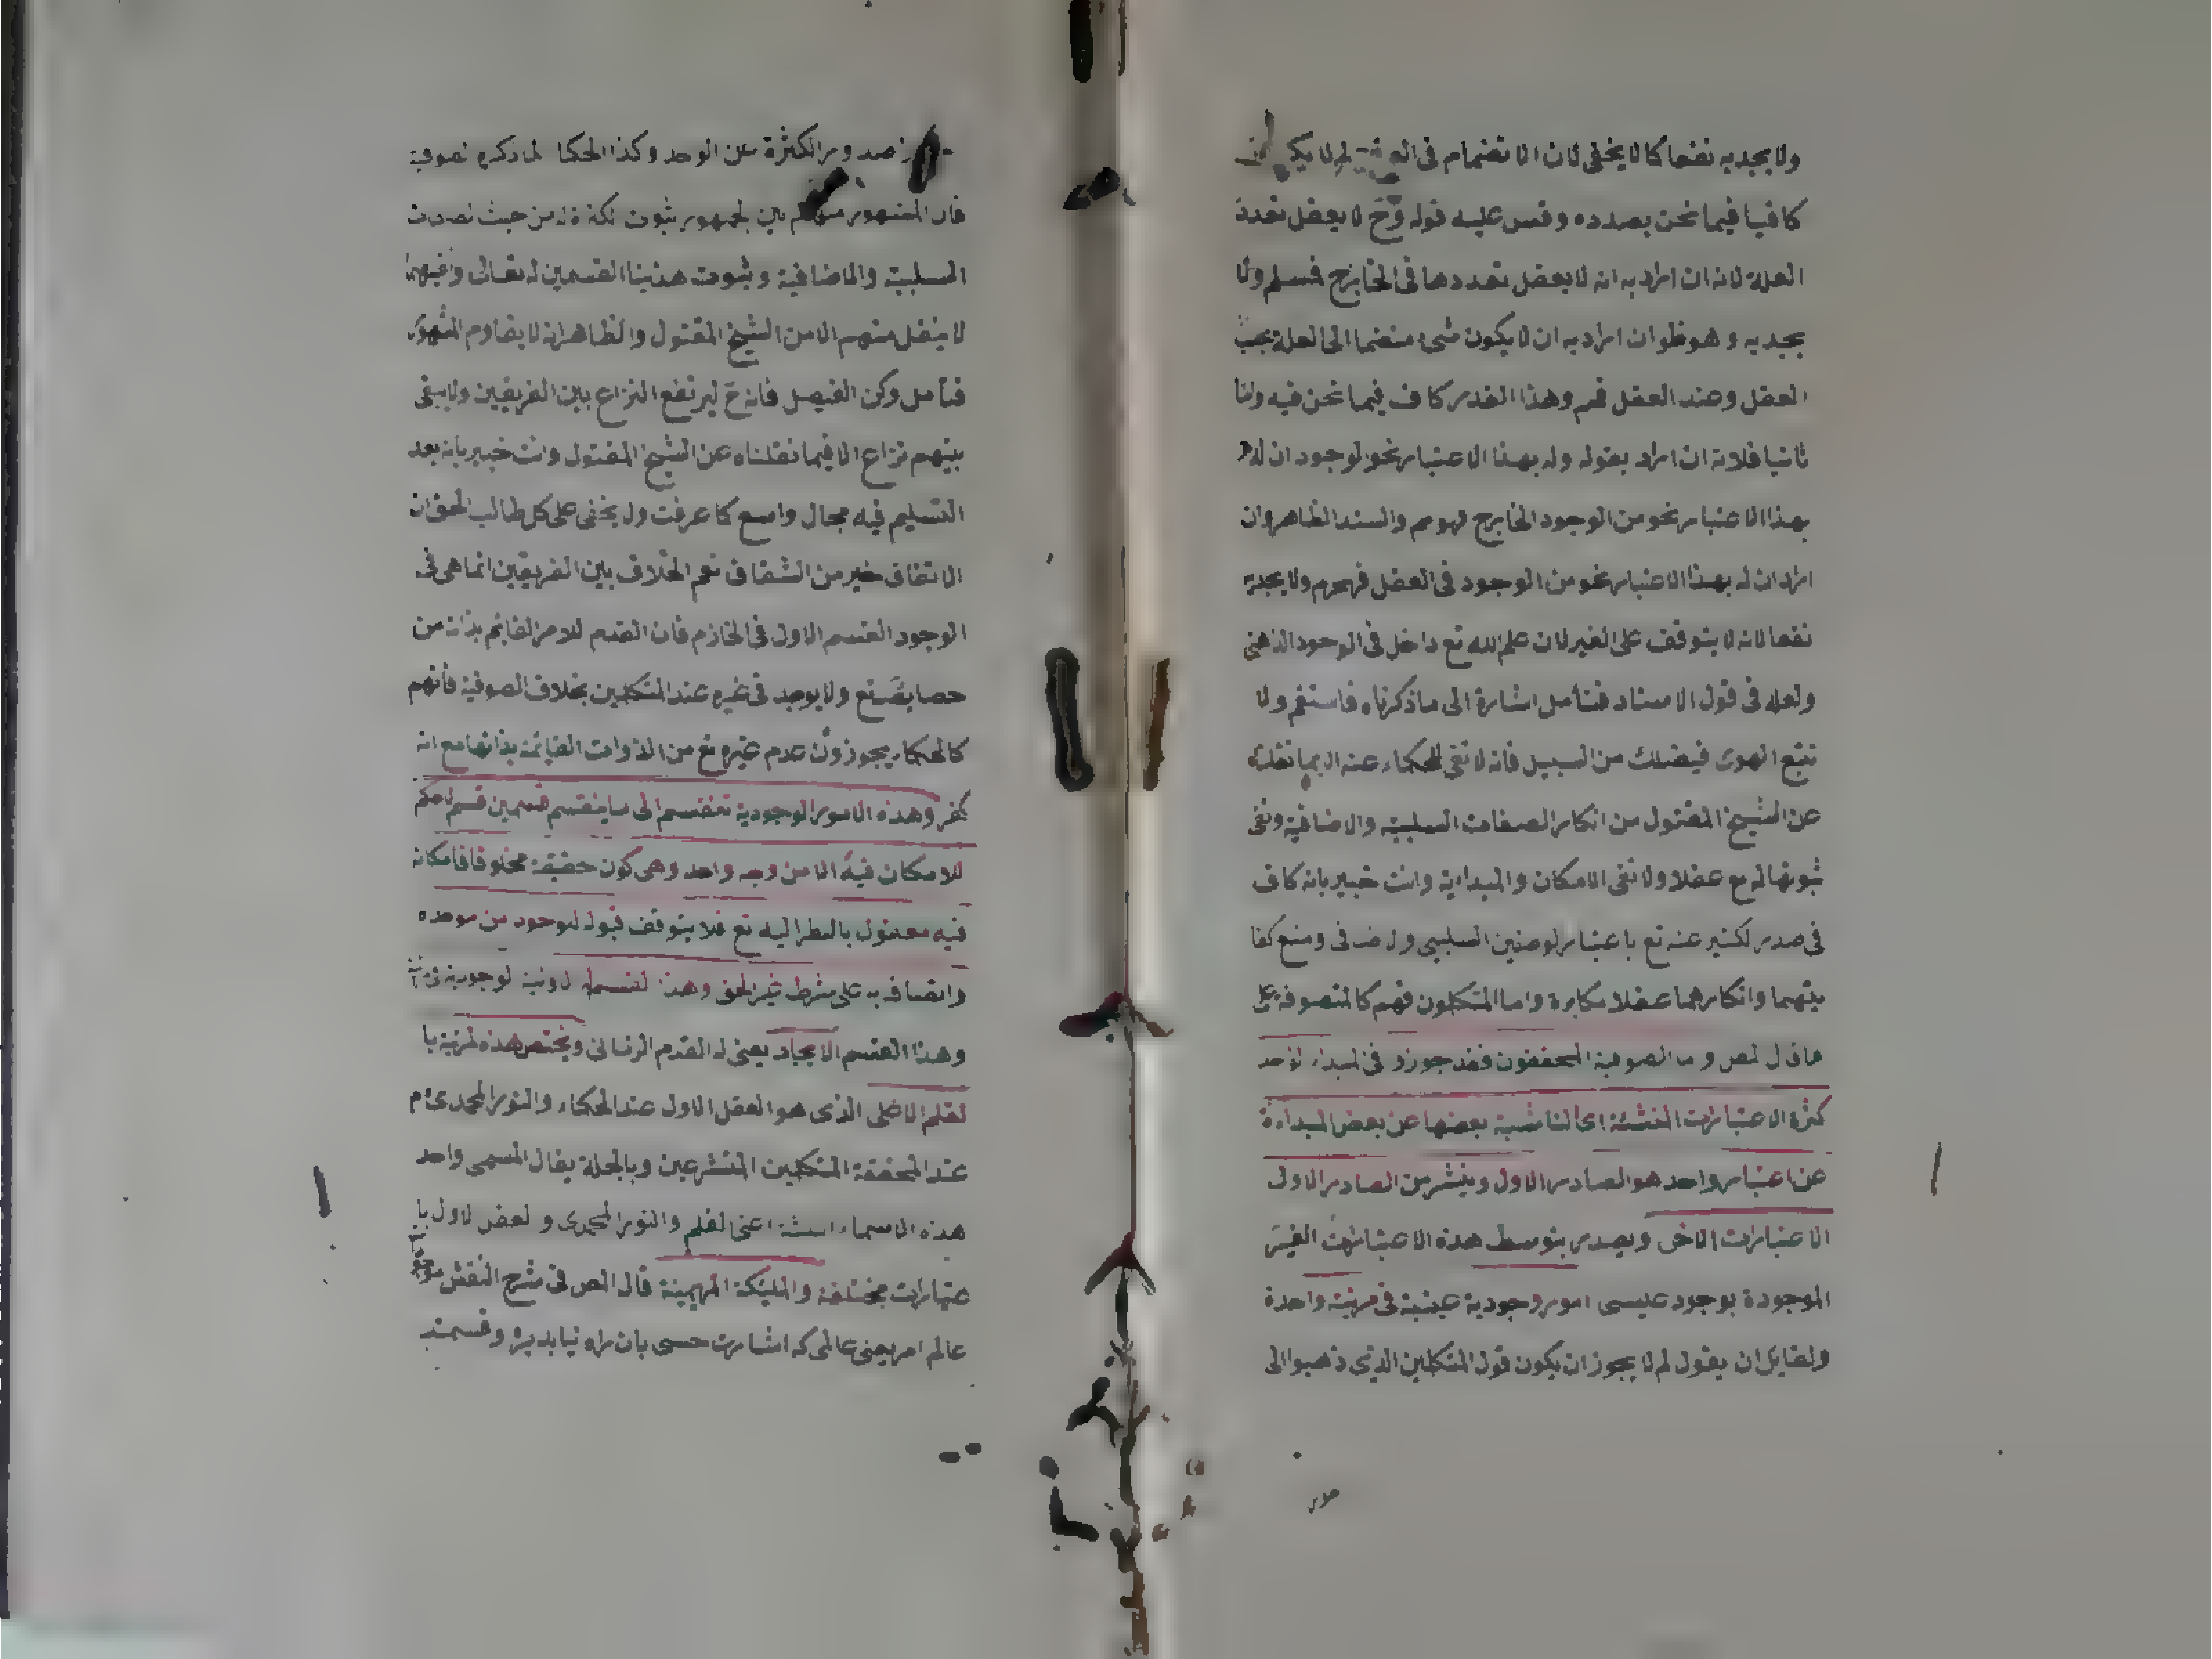 ولا يجديه نفعا كما لا يخفى لان الانضمام في العقل لم لا يكون
كافيا فيما نحن بصدده وقس عليه قوله وح لا يعقل تعدد
العلة لانه ان اراد به انه لا يعقل تعددها في الخارج فمسلم ولا
يجديه وهو ظ وان اراد به ان لا يكون شيء منضما الى العلة بحسب
العقل وعند العقل فمم وهذا القدر كاف فيما نحن فيه واما
ثانيا فلانه ان اراد بقوله وله بهذا الاعتبار نحو الوجود ان له
بهذا الاعتبار نحو من الوجود الخارج فهو مم والسند الظاهر وان
اراد ان له بهذا الاعتبار نحو من الوجود في العقل فهو مم ولا يجديه
نفعا لانه لا يتوقف على الغير لان علم الله تع داخل في الوجود الذهني
ولعله في قول الاستاد فتأمل اشارة الى ما ذكرناه فاستقم ولا
تتبع الهوى فيضلك من السبيل فانه لا نفى للحكماء عنه الا بما نقلناه
عن الشيخ المقتول من انكار الصفات السلبية والاضافية ونفى
ثبوتها له تع عقلا ولا نفى الامكان والمبداءية وانت خبير بانه كاف
في صدر لكثير عنه تع باعتبار لوصفين السلبي ولاضافي ومنع كفا
يتهما وانكارهما عقلا مكابرة واما المتكلون فهم كالمتصوفة على
ما قال لمص وما الصوفية المحققون فقد جوزو في لمبداء لواحد
كثرة الاعتبارات المنتشئة اى الناشية بعضها عن بعض المبداءة
عن اعتبار واحد هو الصادر الاول وينشر من الصادر الاول
الاعتبارات الاخر ويصدر بتوسط هذه الاعتبارات الغير
الموجودة بوجود عيسى امور وجودية عينية في مرتبة واحدة
ولقايل ان يقول لم لا يجوز ان يكون قول المتكلمين الذين ذهبوا الى
صدور الكثرة عن الوحد وكذا الحكما لما ذكره لصوفية
فان المشهور منهم بين لجمهور ثبوت لكثرة له من حيث لصفات
السلبية والاضافية وثبوت هذين القسمين له تعالى ونفيهما
لا ينقل منهم الا من الشيخ المقتول والظاهر انه لا يقاوم المشهور
فتأمل وكن الفيصل فانه ح ليرتفع النزاع بين الفريقين ولا يبقى
بينهم نزاع الا فيما نقلناه عن الشيخ المقتول وانت خبير بانه بعد
التسليم فيه مجال واسع كما عرفت ولا يخفى على كل طالب الحق ان
الاتفاق خير من الشقاق نعم الخلاف بين الفريقين انما هي في
الوجود القسم الاول في الخازم فان القدم للامر القايم بذاته من
خصايصه تع ولا يوجد في غيره عند المتكلمين بخلاف الصوفية فانهم
كالحكماء يجوزون عدم غيره تع من الذوات القائمة بذاتها مع انه
كفر وهذه الامور الوجودية تنقسم الى ما ينقسم قسمين قسم لا حكم
للامكان فيه الا من وجه واحد وهي كون حقيقة مخلوقا فامكانه
فيه معقول بالنظر اليه تع فلا يتوقف قبوله لوجود من موجده
واتصافه به على شرط غير الحق وهذا لقسم له لاولية لوجودية
وهذا القسم الايجاد يعني له القدم الزماني ويختص هذه لمرتبة با
لقلم الاعلى الذى هو العقل الاول عند الحكماء والنور المحمدى م
عند المحققة المتكلمين المتشرعين وبالجملة يقال المسمى واحد
هذه الاسماء اعنى لقلم والنور المحمدى ولعقل لاول با
عتبارات مختلفة والمليكة المهيمنة قال المص في شرح النقش
عالم امر يعنى عالمى كه اشارت حسى بان راه نيابد